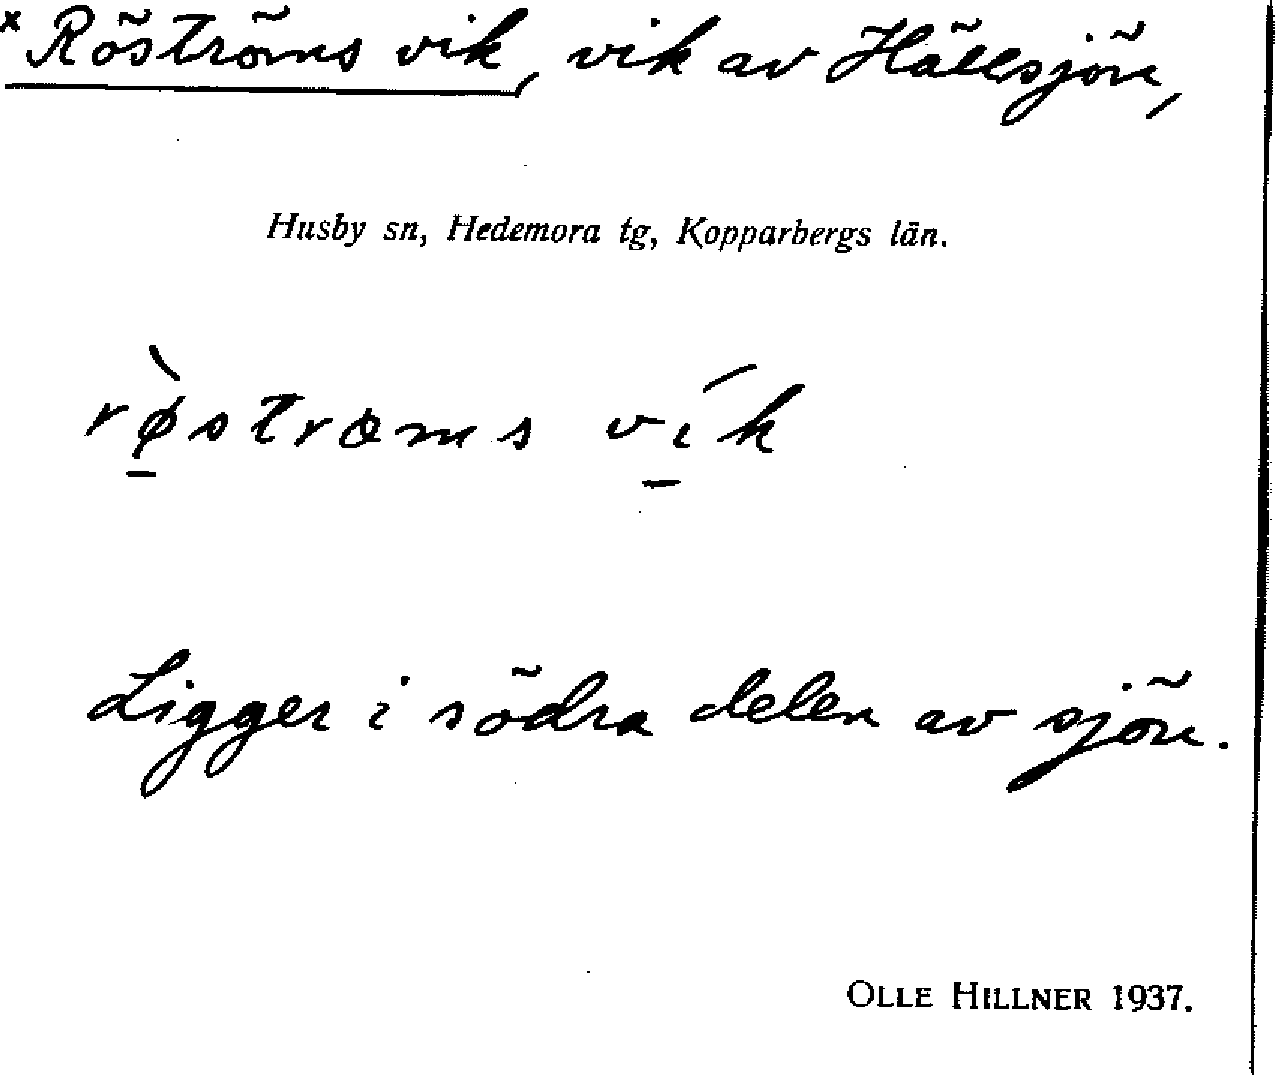 x Röströms vik, vik av Hällsjön,
Husby sn, Hedemora tg, Kopparbergs län.
rø̱̀strœms ví̱k
Ligger i södra delen av sjön.
OLLE HILLNER 1937.